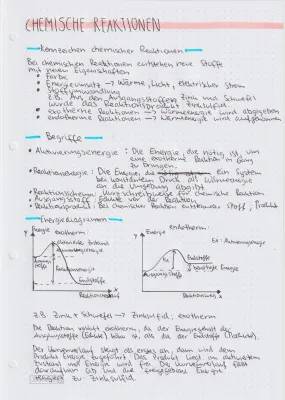 CHEMISCHE REAKTIONEN
Kennzeichen chemischer Reaktionen
Bei chemischen Reaktionen entstehen neue Stoffe
mit neuen Eigenschaften
Farbe
Energieumsatz → Wärme, Licht, elektrischer Strom
Stoffumwandlung
z.B. Aus den Ausgangsstoffen Zink und Schwefel
wurde das Reaktionsprodukt Zinksulfid.
exotherme Reaktionen → Wärmeenergie wird abgegeben
endotherme Reaktionen → Wärmeenergie wird aufgenommen
Begriffe
Aktivierungsenergie: Die Energie, die nötig ist, um
eine exotherme Reaktion in Gang
zu bringen.
Reaktionsenergie: Die Energie, die ein System
bei konstantem Druck als Wärmeenergie
an die Umgebung abgibt
Reaktionsschema: Kurzschreibweise für chemische Reaktion
Ausgangsstoff: Edukte vor der Reaktion
Reaktionsprodukt: Bei chemischer Reaktion entstandener Stoff, Produkt
Energiediagramm
exotherm:
endotherm:
EA: Aktivierungsenergie
Aktivierungsenergie
Reaktionsenergie
Endstoffe
Reaktionsverlauf
Ausgangsstoffe
Endstoffe
Energie
Reaktionsverlauf
z.B. Zink + Schwefel → Zinksulfid; exotherm
Die Reaktion verläuft exotherm, da der Energiegehalt der
Ausgangsstoffe (Edukte) höher ist, als die der Endstoffe (Produkte).
Der Kurvenverlauf steigt als erstes an, dann wird dem
Produkt Energie zugeführt. Das Produkt liegt im aktivierten
Zustand und Energie wird frei. Die Kurvenverlauf fällt
daraufhin ab und die freigegebene Energie
zu Zinksulfid.